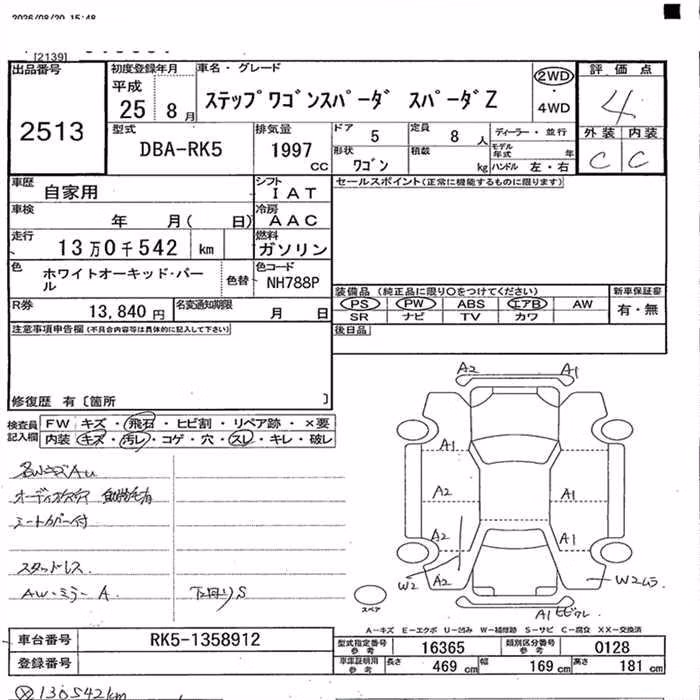 2026/08/20 15:48
[2139]
出品番号
2513
初度登録年月
平成
25 8 月
車名・グレード
ステップワゴンスパーダ スパーダZ
2WD
・
4WD
評価点
4
外装 内装
C C
型式
DBA-RK5
排気量
1997 CC
ドア 5
定員 8 人
形状 ワゴン
積載 kg
ディーラー・並行
モデル年式 年
ハンドル 左・右
車歴 自家用
シフト IAT
車検 年 月( 日)
冷房 AAC
走行 13万0千542 km
燃料 ガソリン
色 ホワイトオーキッド・パール
色替
色コード NH788P
R券 13,840円
名変通知期限 月 日
セールスポイント(正常に機能するものに限ります)
装備品(純正品に限り○をつけてください)
PS PW ABS エアB AW
SR ナビ TV カワ
新車保証書
有・無
後日品
注意事項申告欄(不具合内容等は具体的に記入して下さい)
修復歴 有〔箇所 〕
検査員記入欄
FW キズ・飛石・ヒビ割・リペア跡・×要
内装・キズ・汚レ・コゲ・穴・スレ・キレ・破レ
シートカバー付
スタッドレス
AW・ミラー A
下回りS
A2 A1
A1
A2 A1
A2 A1
W2 A2 W2ムラ
A1ヒビワレ
スペア
A－キズ E－エクボ U－凹み W－補修跡 S－サビ C－腐食 XX－交換済
車台番号 RK5-1358912
登録番号
型式指定番号参考 16365
類別区分番号参考 0128
車庫証明用参考 長さ 469 cm 幅 169 cm 高さ 181 cm
130542km